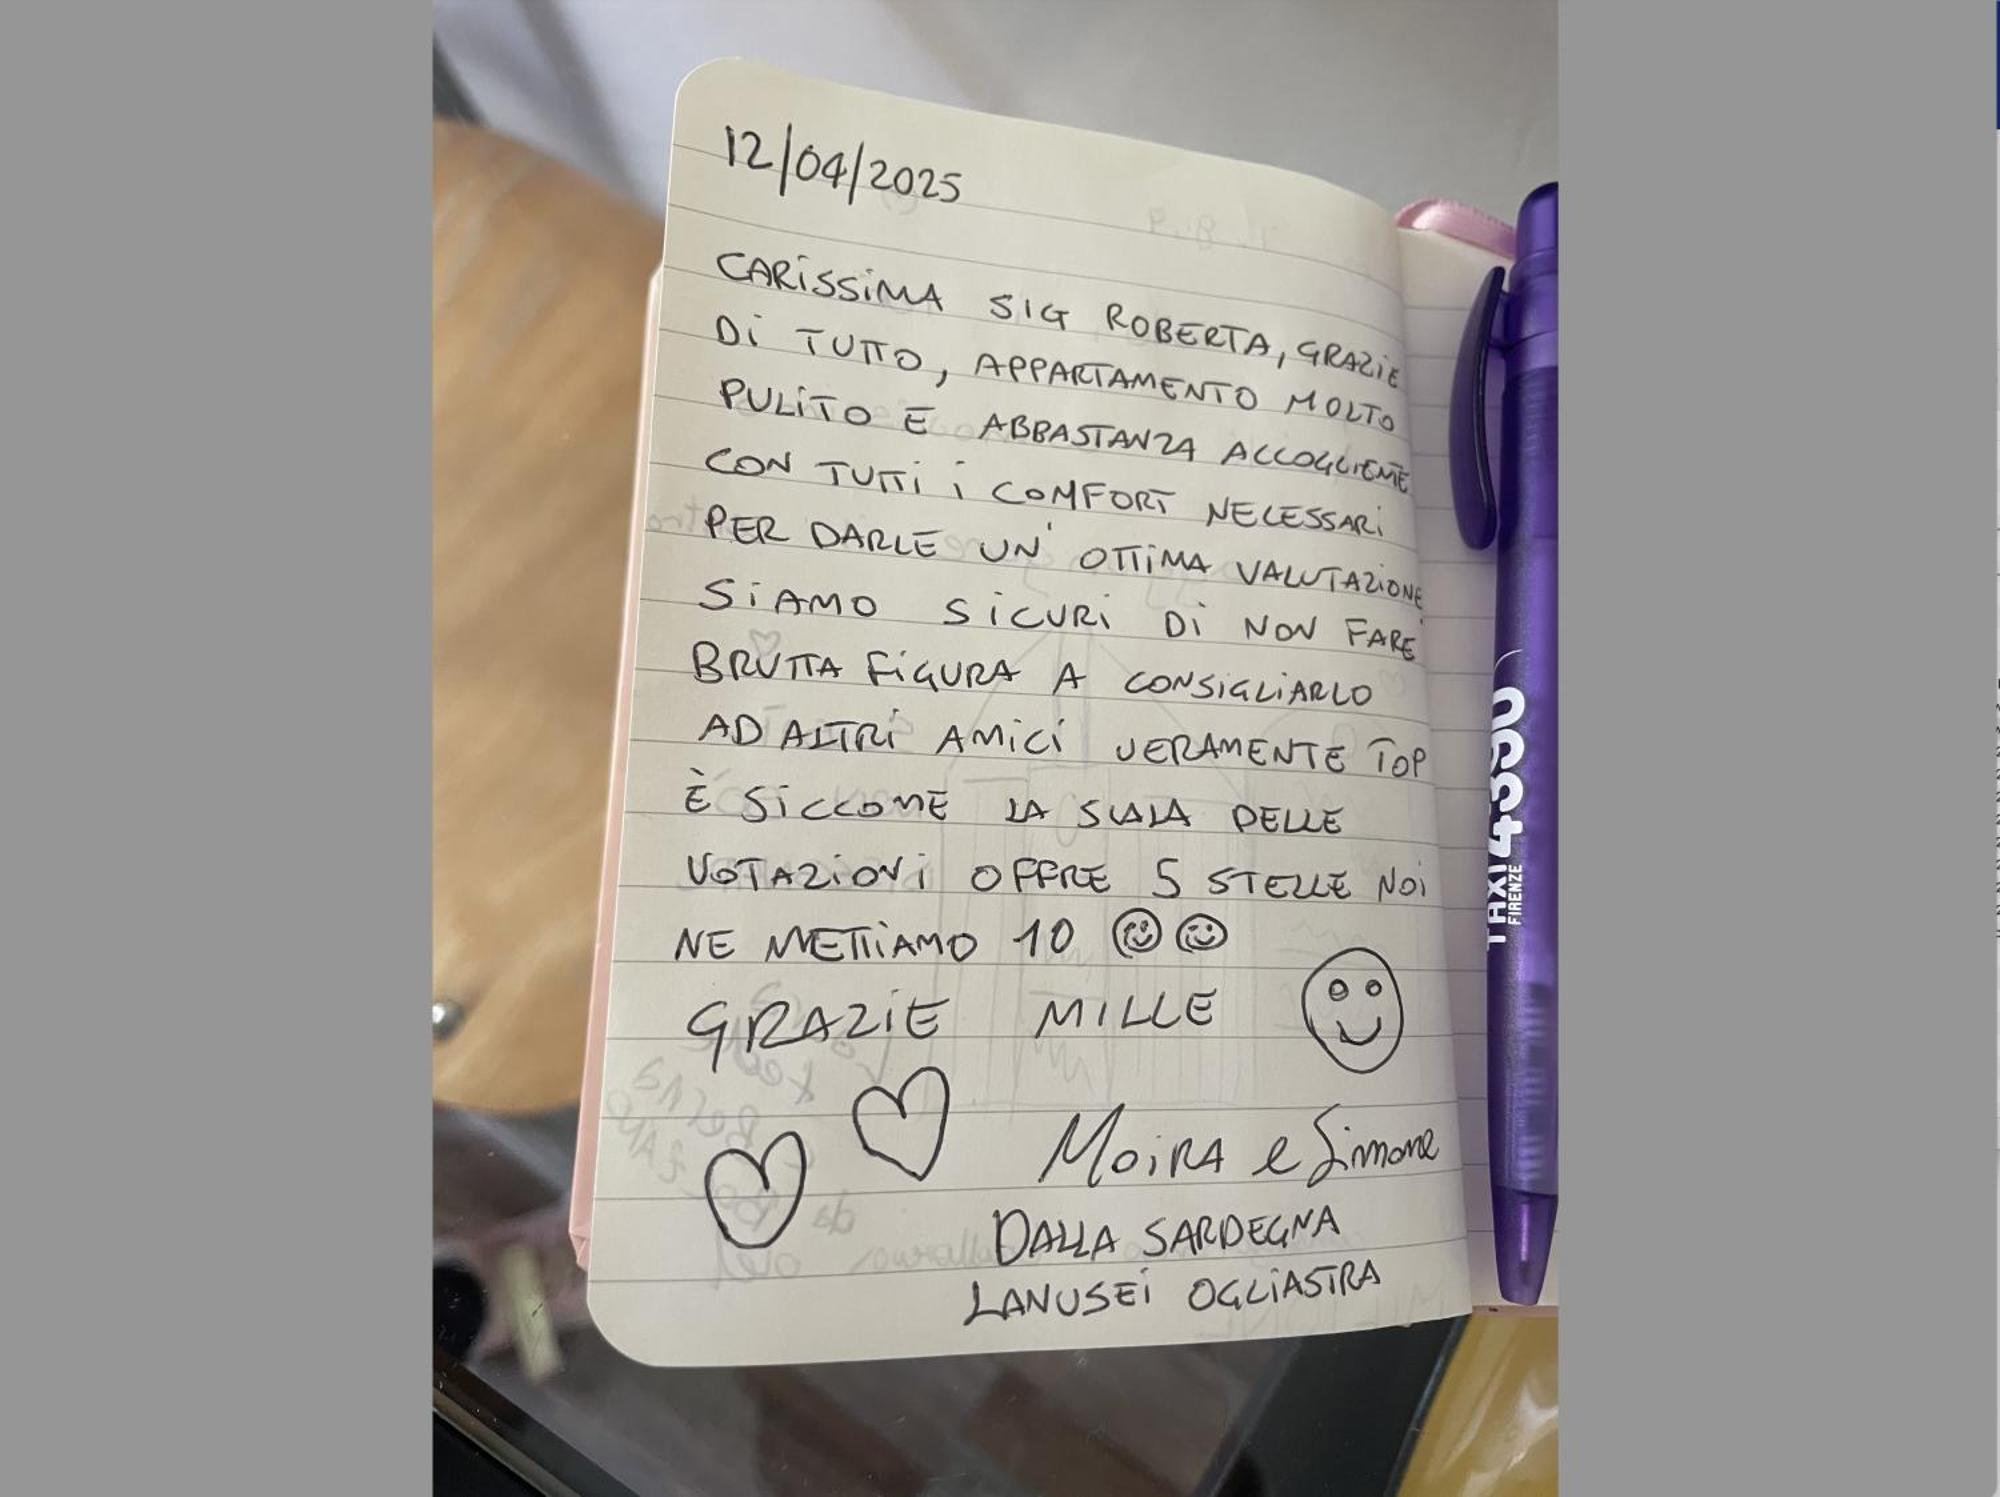 12/04/2025
CARISSIMA SIG ROBERTA, GRAZIE
DI TUTTO, APPARTAMENTO MOLTO
PULITO E ABBASTANZA ACCOGLIENTE
CON TUTTI I COMFORT NECESSARI
PER DARLE UN' OTTIMA VALUTAZIONE
SIAMO SICURI DI NON FARE
BRUTTA FIGURA A CONSIGLIARLO
AD ALTRI AMICI VERAMENTE TOP
È SICCOME LA SCALA DELLE
VOTAZIONI OFFRE 5 STELLE NOI
NE METTIAMO 10
GRAZIE MILLE
MOIRA e Simone
DALLA SARDEGNA
LANUSEI OGLIASTRA
TAXI 4390
FIRENZE